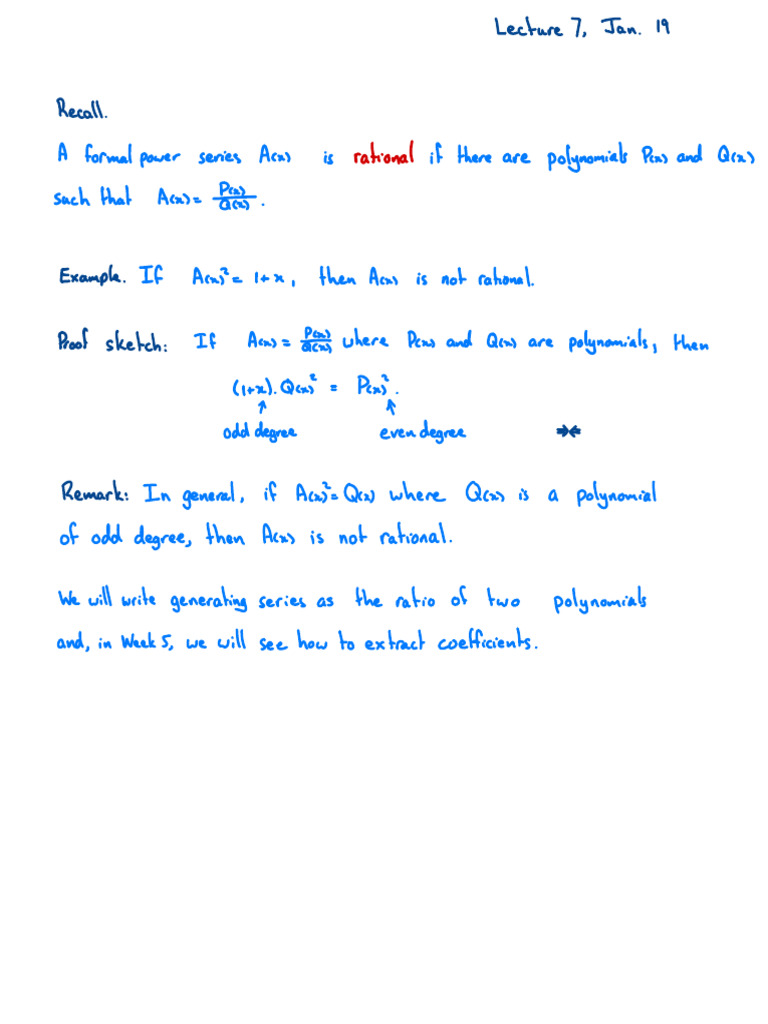 Lecture 7, Jan. 19
Recall.
A formal power series A(x) is rational if there are polynomials P(x) and Q(x)
such that A(x) = P(x)/Q(x).
Example. If A(x)² = 1+x, then A(x) is not rational.
Proof sketch: If A(x) = P(x)/Q(x) where P(x) and Q(x) are polynomials, then
(1+x).Q(x)² = P(x)².
↑ ↑
odd degree even degree →←
Remark: In general, if A(x)² = Q(x) where Q(x) is a polynomial
of odd degree, then A(x) is not rational.
We will write generating series as the ratio of two polynomials
and, in Week 5, we will see how to extract coefficients.